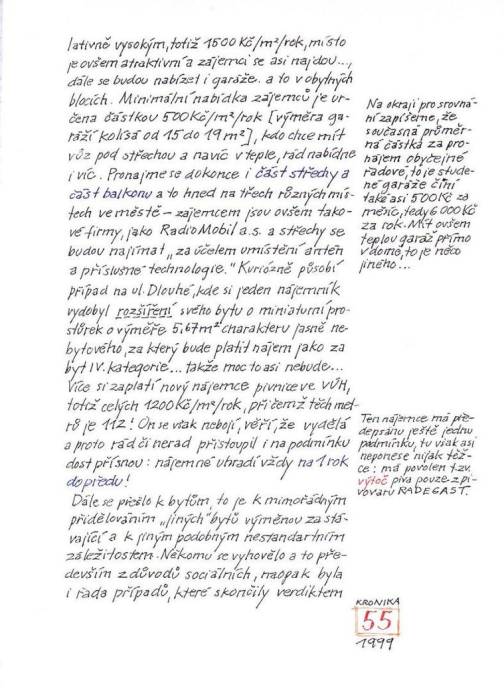 lativně vysokým, totiž 1500 Kč/m²/rok, místo
je ovšem atraktivní a zájemci se asi najdou...,
dále se budou nabízet i garáže a to v obytných
blocích. Minimální nabídka zájemců je ur-
čena částkou 500 Kč/m²/rok [výměra ga-
ráží kolísá od 15 do 19 m²], kdo chce mít
vůz pod střechou a navíc v teple, rád nabídne
i víc. Pronajme se dokonce i část střechy a
část balkonu a to hned na třech různých mís-
tech ve městě – zájemcem jsou ovšem tako-
vé firmy, jako RadioMobil a.s. a střechy se
budou najímat „za účelem umístění antén
a příslušné technologie." Kuriózně působí
případ na ul. Dlouhé, kde si jeden nájemník
vydobyl rozšíření svého bytu o miniaturní pro-
stůrek o výměře 5,67 m² charakteru jasně ne-
bytového, za který bude platit nájem jako za
byt IV. kategorie... takže moc to asi nebude...
Více si zaplatí nový nájemce pivnice ve VÚH,
totiž celých 1200 Kč/m²/rok, přičemž těch met-
rů je 112! On se však nebojí, věří, že vydělá
a proto rád či nerad přistoupil i na podmínku
dost přísnou: nájemné uhradí vždy na 1 rok
dopředu!
Dále se přešlo k bytům, to je k mimořádným
přidělováním „jiných" bytů výměnou za stá-
vající a k jiným podobným nestandartním
záležitostem. Někomu se vyhovělo a to pře-
devším z důvodů sociálních, naopak byla
i řada případů, které skončily verdiktem
Na okraji pro srovná-
ní zapíšeme, že
současná průměr-
ná částka za pro-
nájem obyčejné
řadové, to je stude-
né garáže činí
také asi 500 Kč za
měsíc, tedy 6000 Kč
za rok. Mít ovšem
teplou garáž přímo
v domě, to je něco
jiného...
Ten nájemce má pře-
depsánu ještě jednu
podmínku, tu však asi
neponese nijak těž-
ce: má povolen tzv.
výtoč piva pouze z pi-
vovaru RADEGAST.
KRONIKA
55
1999